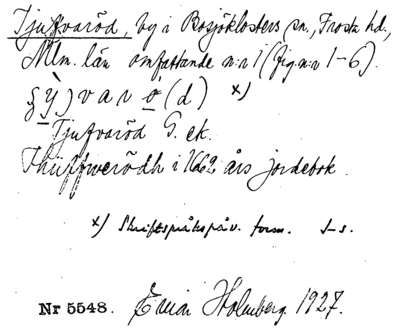 Tjufvaröd, by i Bosjöklosters sn., Frosta hd.,
Mlm. län omfattande n:r 1 (fig. n:r 1-6).
ỳ) v a r ö (d) x)
Tjufvaröd G. ek.
Thiuffwerödh i 1662 års jordebok.
x) Skriftspråkspåv. form.
Nr 5548. Holmberg 1927.